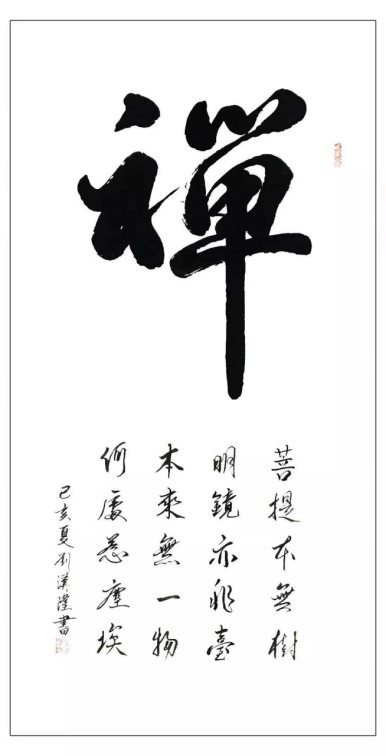 禪
菩提本無樹
明鏡亦非臺
本來無一物
何處惹塵埃
己亥夏刘漢書